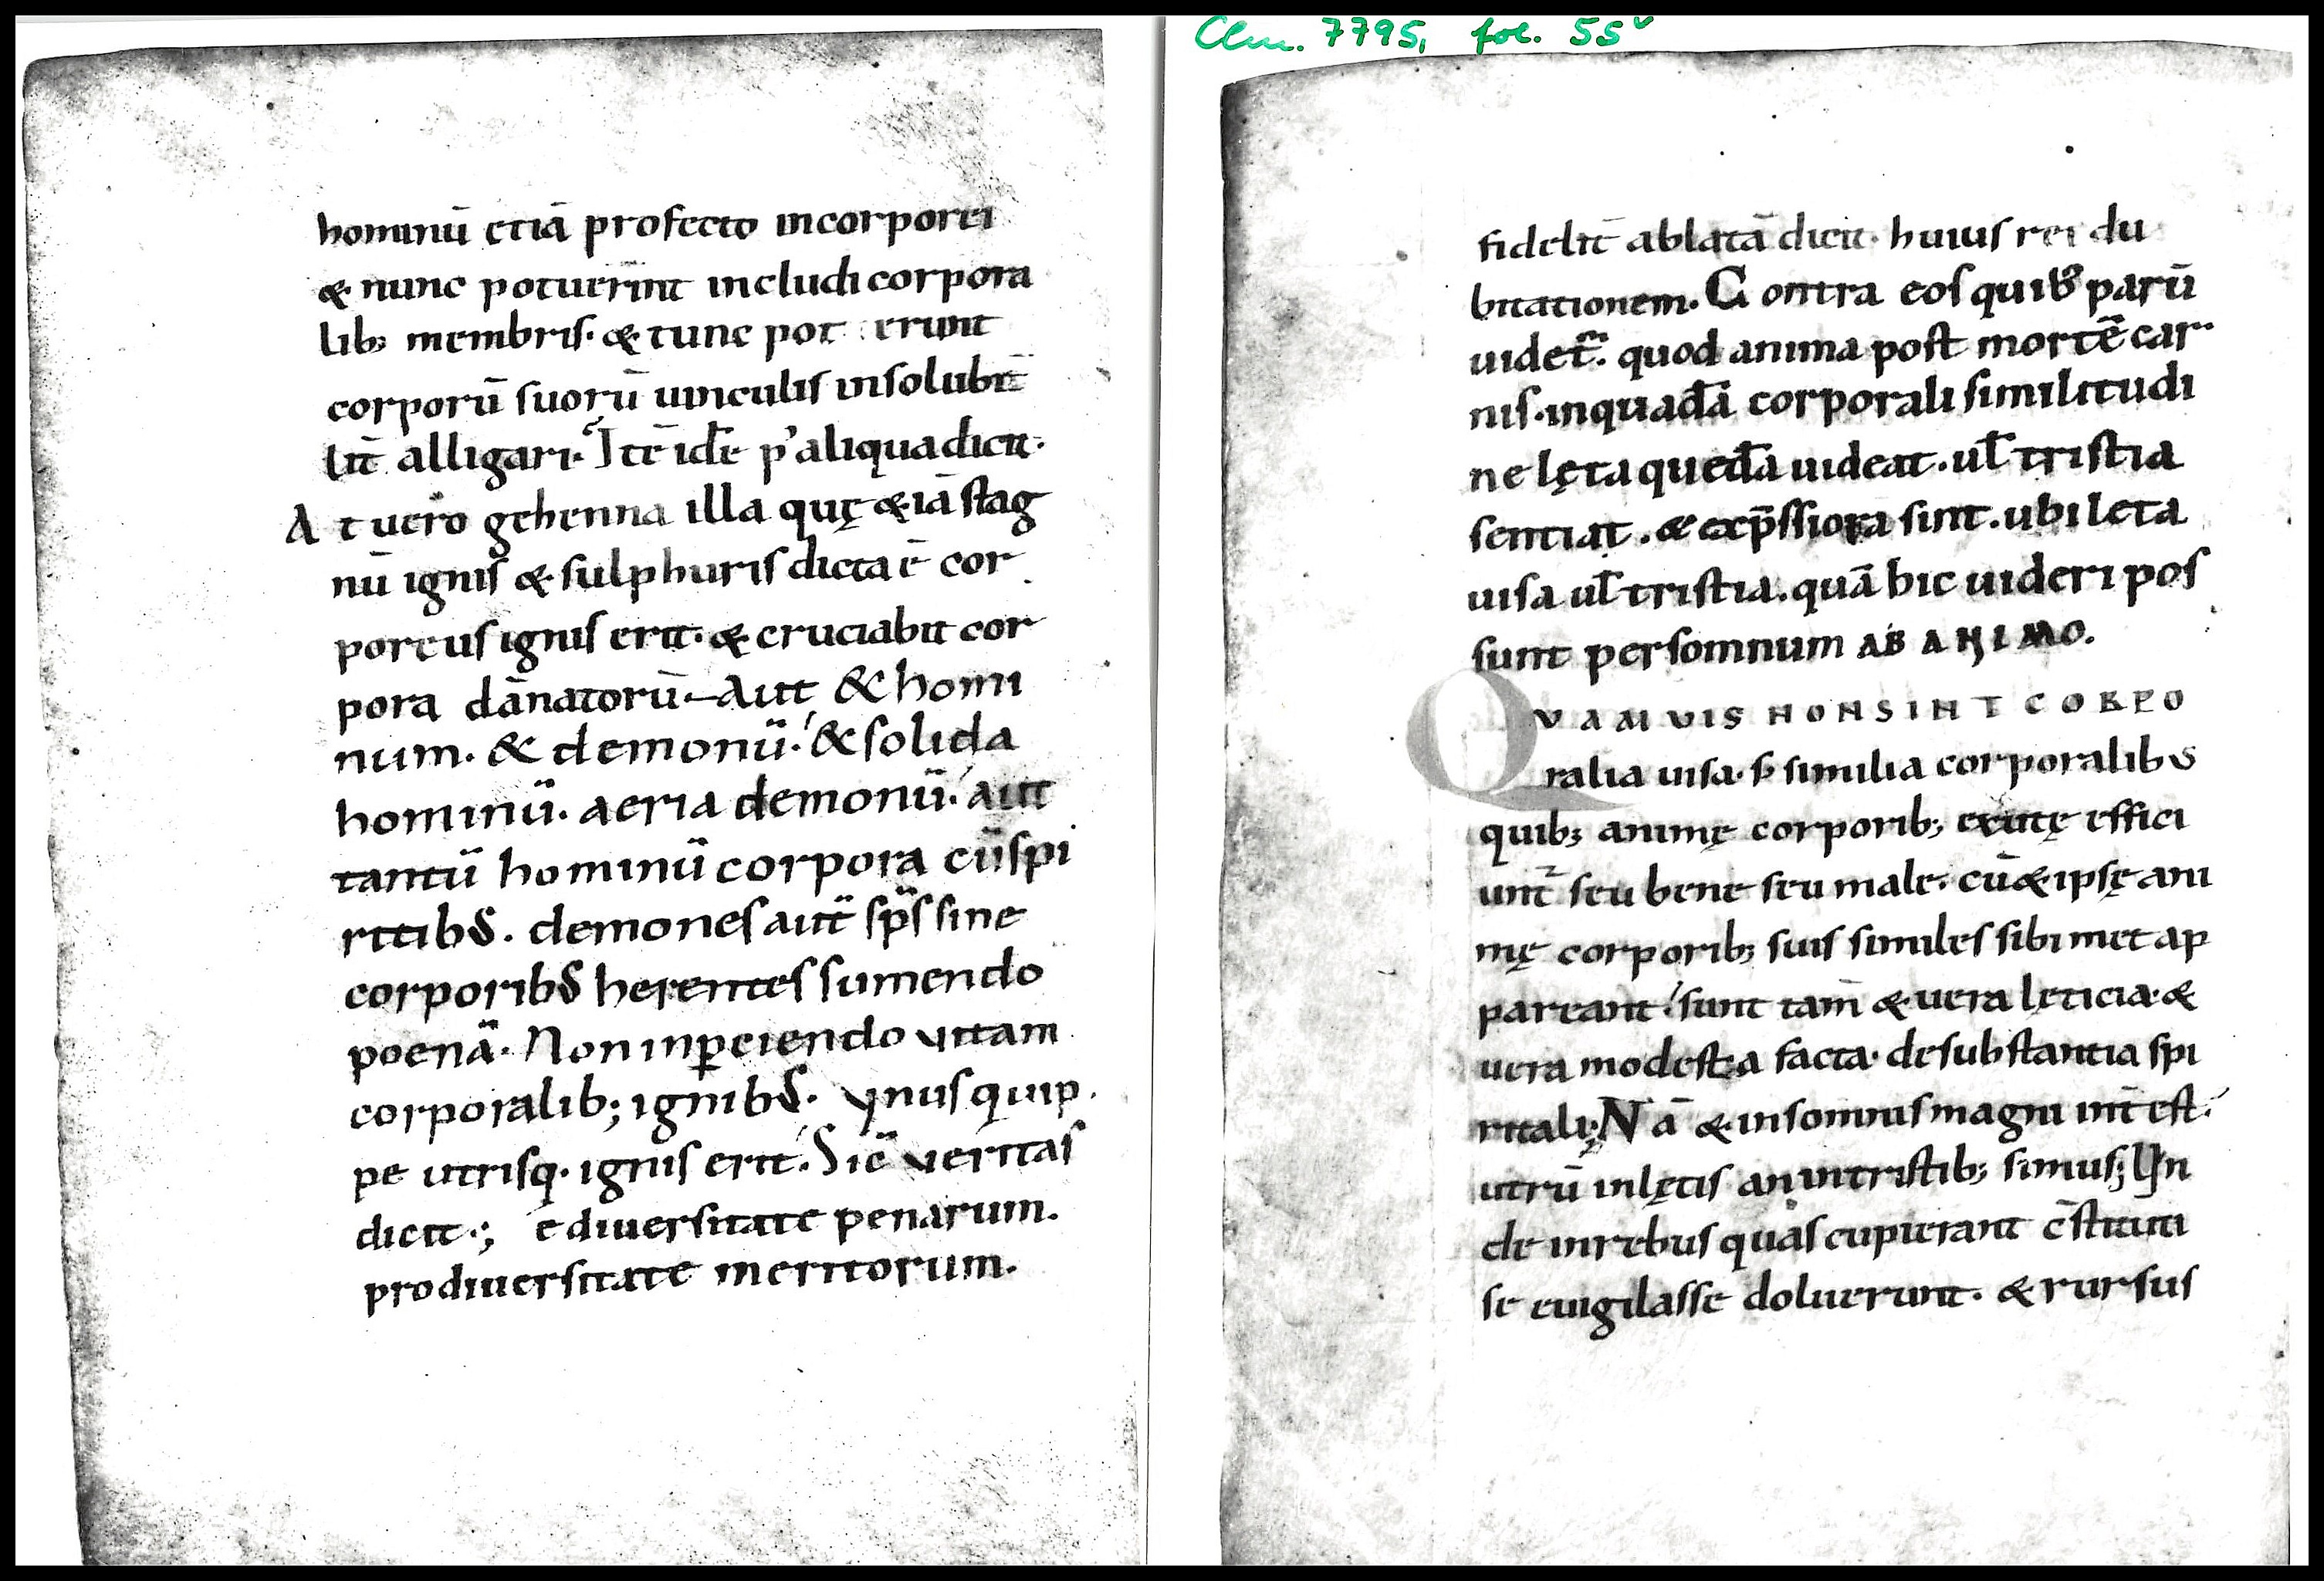 hominū etiā profecto incorporei
& nunc potuerint includi corpora
lib; membris. & tunc pot erunt
corporū suorū uinculis insolubi
lit̄ alligari. Itē idē p' aliqua dicit.
At uero gehenna illa quę & iā stag
nū ignis & sulphuris dicta ē cor
poreus ignis erit. & cruciabit cor
pora dānatorū. Aut & homi
num. & demonū. & solida
hominū. aeria demonū. aut
tantū hominū corpora cū spi
ritibus. demones aut̄ sp̄s sine
corporibus herentes sumendo
poenā. Non inꝑciendo vitam
corporalib; ignibus. vnus quip
pe utrisq. ignis erit. Sic̄ veritas
dicit.; e diuersitate penarum.
pro diuersitate meritorum.
Clm. 7795, fol. 55v
fidelit̄ ablatā dicit. huius rei du
bitationem. Contra eos quibus parū
uidet̄. quod anima post mortē car
nis. in quadā corporali similitudi
ne lęta quedā uideat. ul̄ tristia
sentiat. & exp̄ssiora sint. ubi leta
uisa ul̄ tristia. quā hic uideri pos
sunt per somnum AB ANIMO.
QVAMVIS NON SINT CORPO
ralia uisa. s; similia corporalibus
quib; animę corporib; exutę effici
unt̄ seu bene seu male. cū & ipsę ani
mę corporib; suis similes sibimet ap
pareant. sunt tam̄ & uera lęticia. &
uera modesta facta. de substantia spi
ritali. Nā & in somnis magni int̄ est.
utrū in lętis an in tristib; simus; In
de in rebus quas cupierant c̄stituti
se euigilasse doluerunt. & rursus